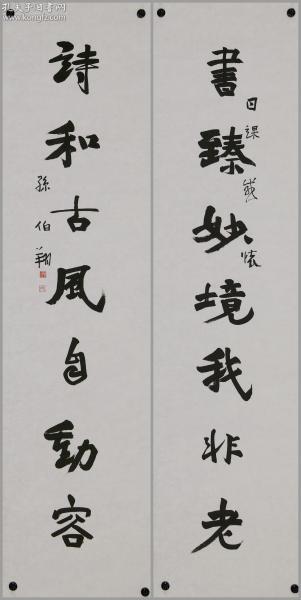 書臻妙境我非老
日課感懷
詩和古風自動容
孫伯翔
孔夫子旧书网
www.kongfz.com